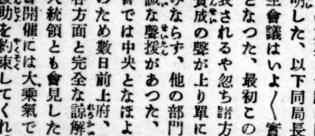 明した、以下同局長
生會議はいよ〳〵實
となつた、最初この
表されるや忽ち諸方
賛成の聲が上り單に
みならず、他の部門
誠な聲援があつた、
では中央となほよ
のため數日前上府、
各方面と完全な諒解
大統領とも會見した
開催には大乘氣で
援助を約束してくれ